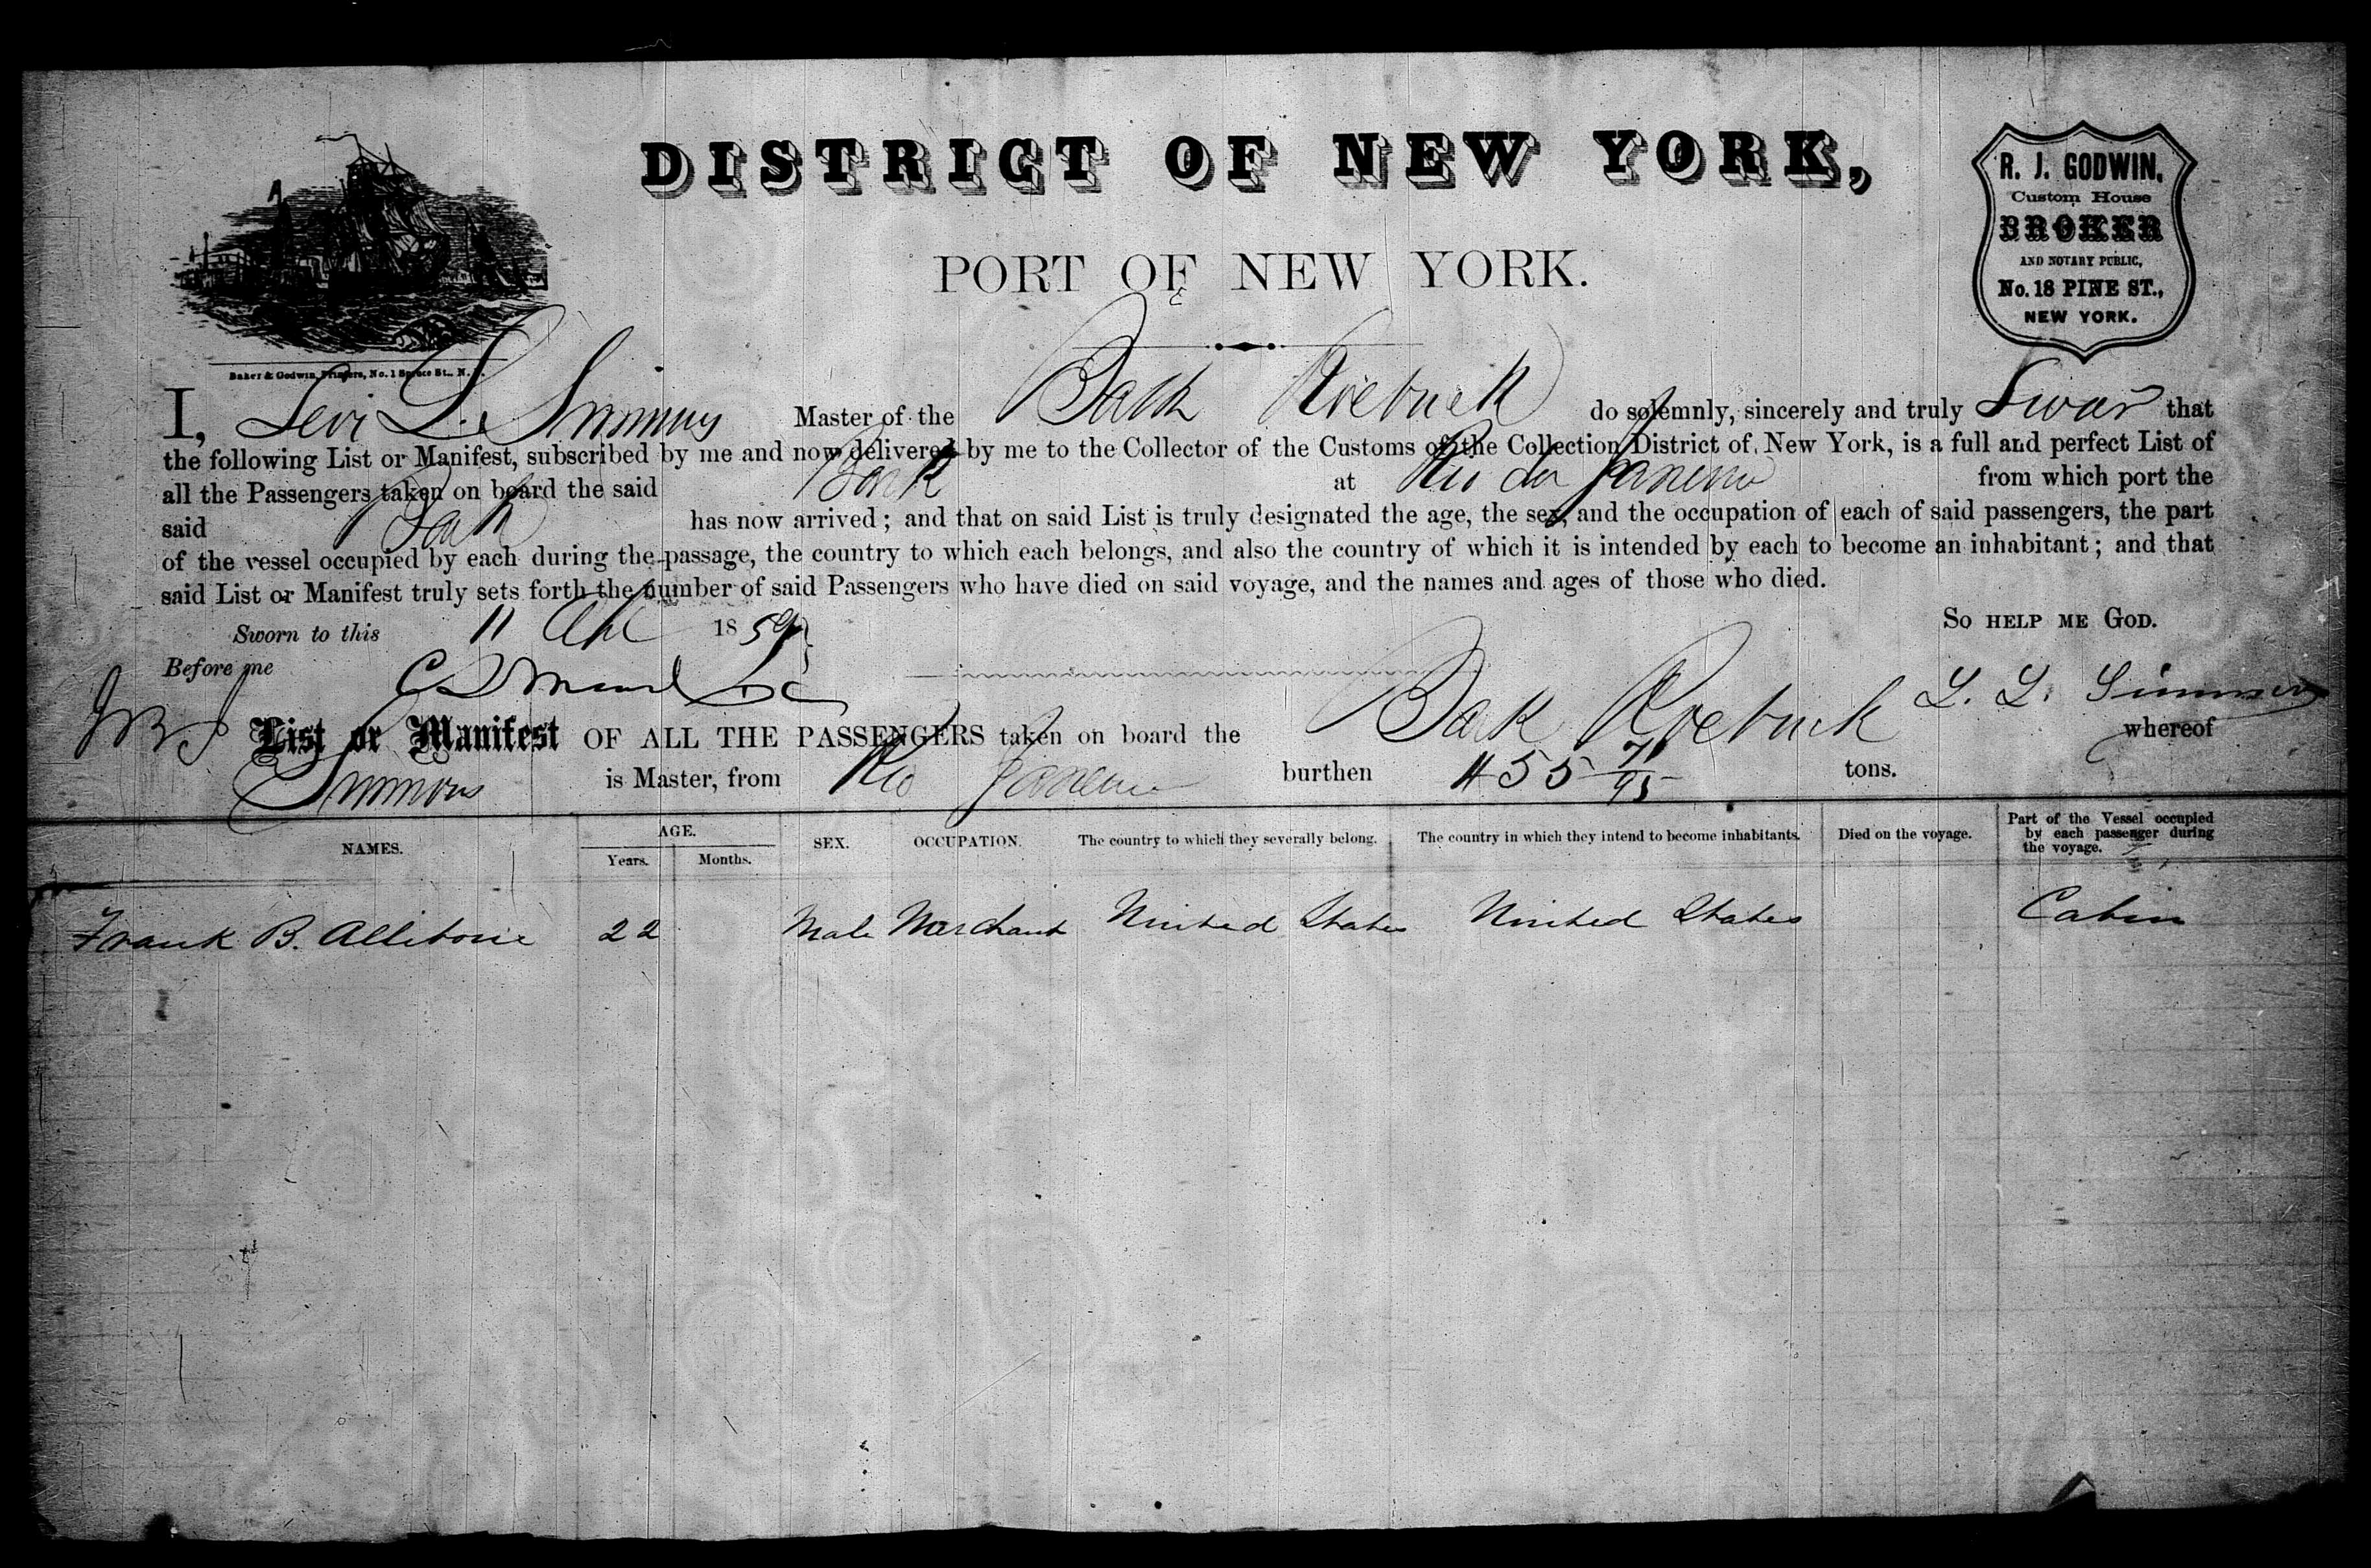 DISTRICT OF NEW YORK,
PORT OF NEW YORK.
R. J. GODWIN,
Custom House
BROKER
AND NOTARY PUBLIC,
No. 18 PINE ST.,
NEW YORK.
Baker & Godwin, Printers, No. 1 Spruce St., N.Y.
I, Levi L. Simmons Master of the Bark Roebuck do solemnly, sincerely and truly Swear that
the following List or Manifest, subscribed by me and now delivered by me to the Collector of the Customs of the Collection District of New York, is a full and perfect List of
all the Passengers taken on board the said Bark at Rio de Janeiro from which port the
said Bark has now arrived; and that on said List is truly designated the age, the sex, and the occupation of each of said passengers, the part
of the vessel occupied by each during the passage, the country to which each belongs, and also the country of which it is intended by each to become an inhabitant; and that
said List or Manifest truly sets forth the number of said Passengers who have died on said voyage, and the names and ages of those who died.
So help me God.
Sworn to this 11 1859
Before me
L. L. Simmons
List or Manifest OF ALL THE PASSENGERS taken on board the Bark Roebuck whereof
Simmons is Master, from Rio Janeiro burthen 455 71/95 tons.
NAMES. AGE. Years. Months. SEX. OCCUPATION. The country to which they severally belong. The country in which they intend to become inhabitants. Died on the voyage. Part of the Vessel occupied by each passenger during the voyage.
Frank B. Allibone 22 Male Merchant United States United States Cabin